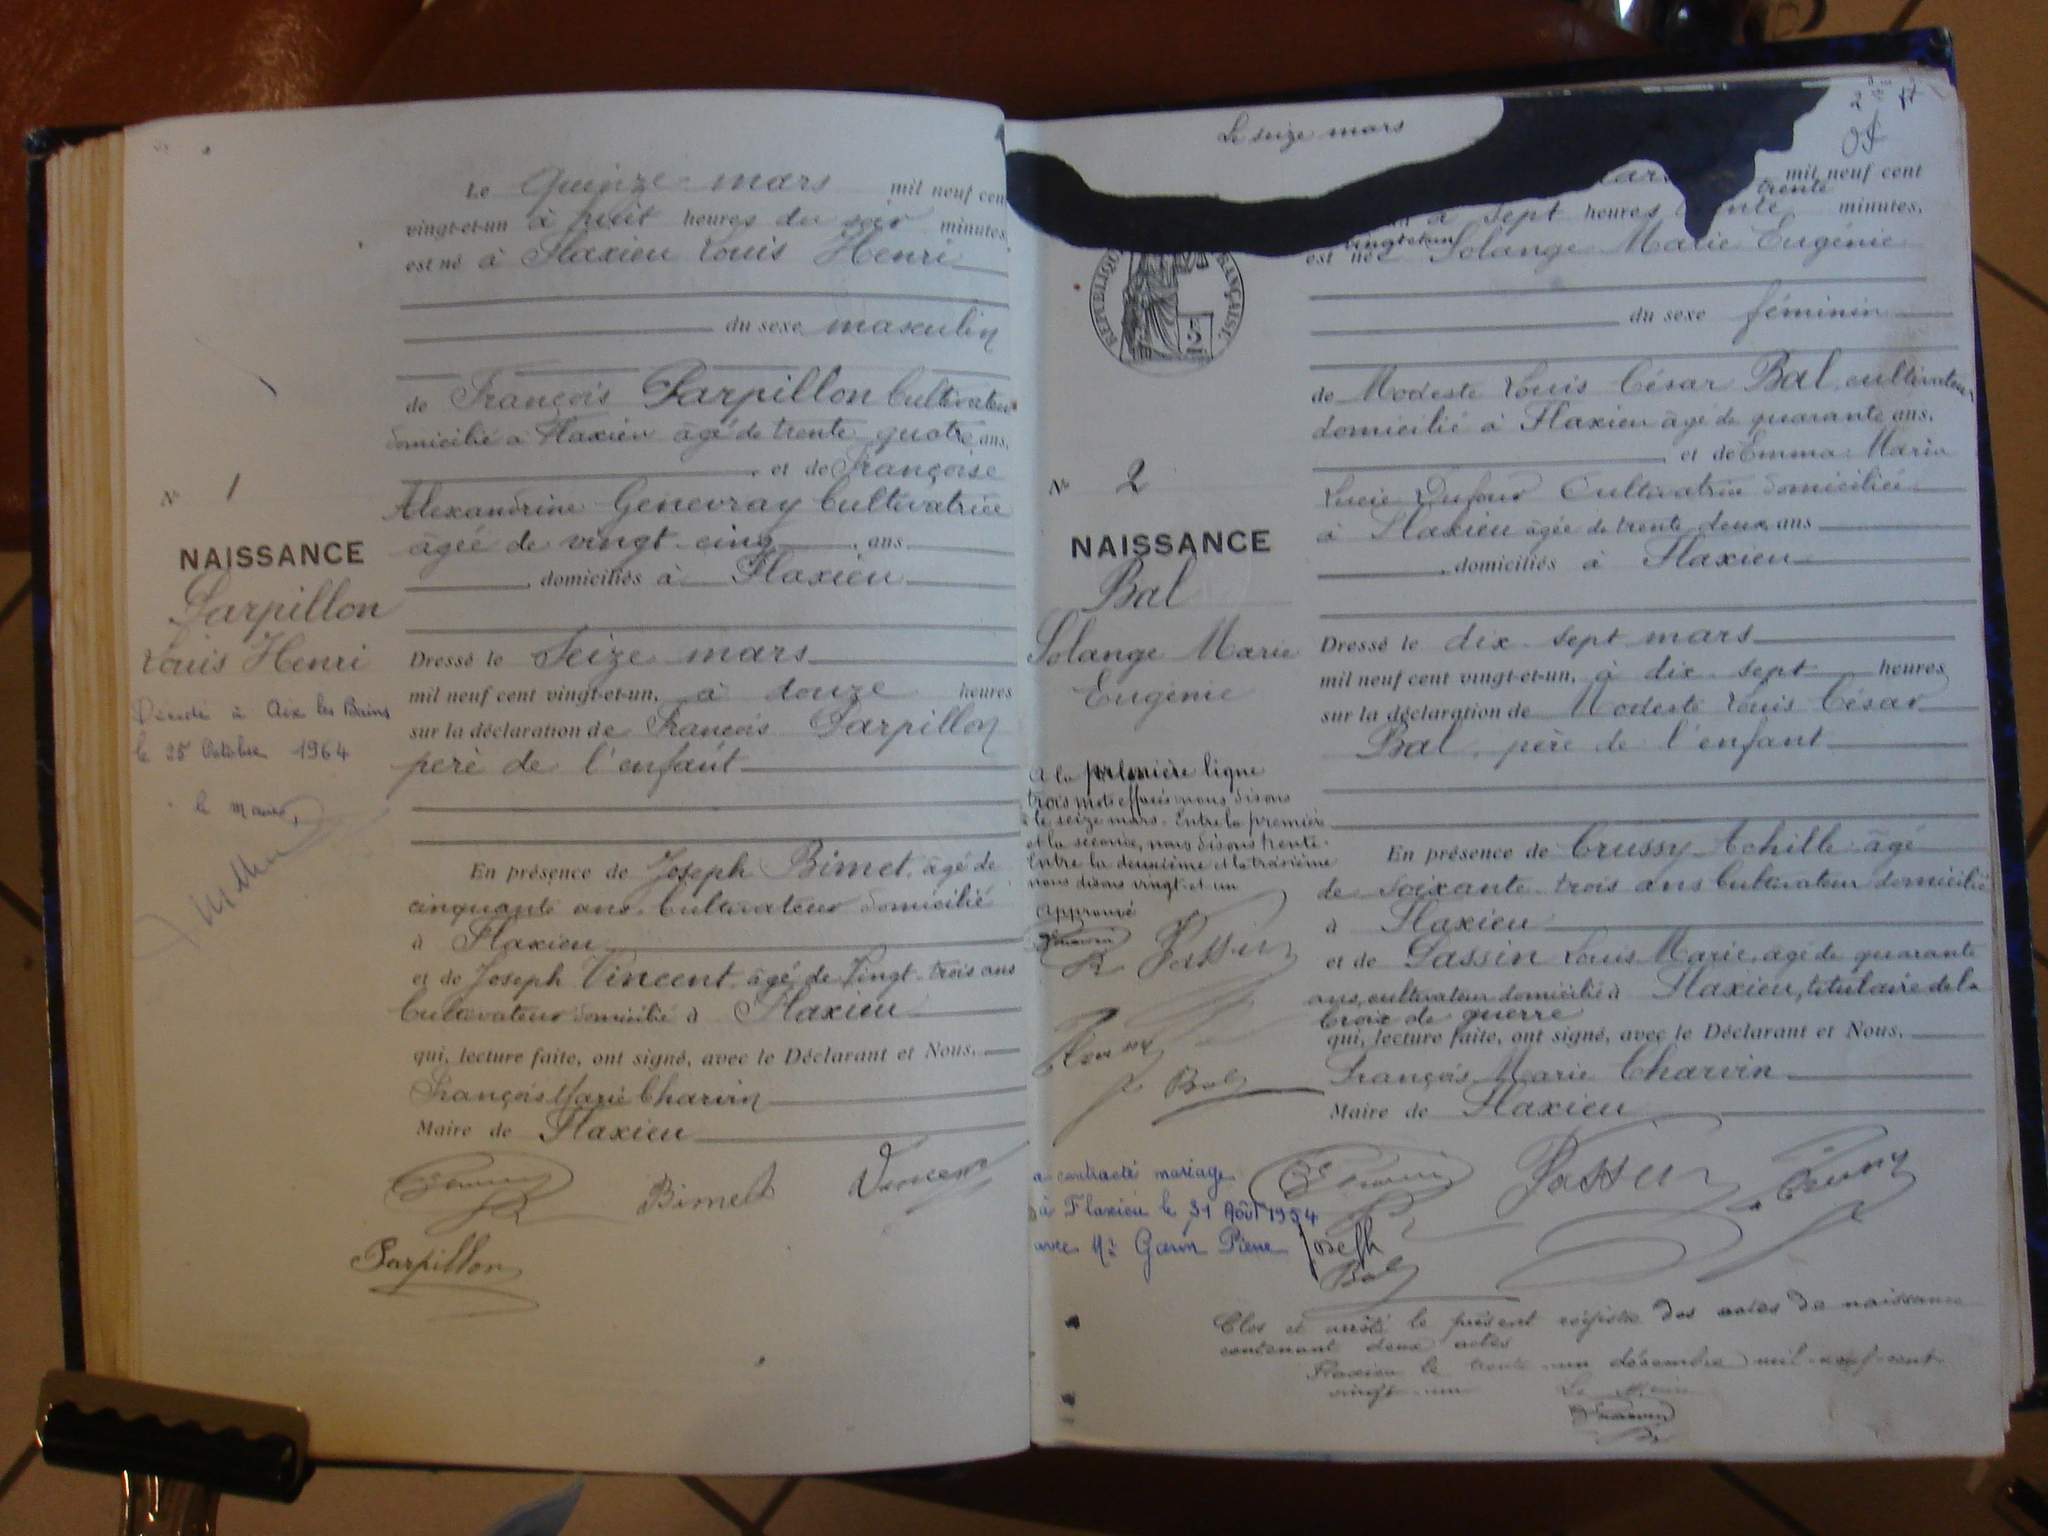 Le Quinze mars mil neuf cent
vingt-et-un à huit heures du soir minutes,
est né à Flaxieu Louis Henri
du sexe masculin
de François Parpillon Cultivateur
domicilié à Flaxieu âgé de trente quatre ans,
et de Françoise
Alexandrine Genevray Cultivatrice
âgée de vingt-cinq ans
domiciliés à Flaxieu
Dressé le Seize mars
mil neuf cent vingt-et-un, à douze heures
sur la déclaration de François Parpillon
père de l'enfant
En présence de Joseph Bimet, âgé de
cinquante ans, Cultivateur domicilié
à Flaxieu
et de Joseph Vincent, âgé de Vingt-trois ans
Cultivateur domicilié à Flaxieu
qui, lecture faite, ont signé, avec le Déclarant et Nous,
François Marie Charvin
Maire de Flaxieu
Charvin Bimet Vincent
Parpillon
N° 1
NAISSANCE
Parpillon
Louis Henri
Décédé à Aix les Bains
le 25 Octobre 1964
le Maire,
Le seize mars
mil neuf cent
trente
à sept heures trente minutes,
vingt et un
est née Solange Marie Eugénie
REPUBLIQUE FRANÇAISE
5
du sexe féminin
de Modeste Louis César Bal, cultivateur
domicilié à Flaxieu âgé de quarante ans,
et de Emma Marie
Lucie Dufour Cultivatrice domiciliée
à Flaxieu âgée de trente deux ans
domiciliés à Flaxieu
Dressé le dix-sept mars
mil neuf cent vingt-et-un, à dix-sept heures
sur la déclaration de Modeste Louis César
Bal, père de l'enfant
En présence de Crussy Achille âgé
de soixante-trois ans Cultivateur domicilié
à Flaxieu
et de Passin Louis Marie, âgé de quarante
ans, cultivateur domicilié à Flaxieu, titulaire de la
Croix de guerre
qui, lecture faite, ont signé, avec le Déclarant et Nous,
François Marie Charvin
Maire de Flaxieu
Charvin Passin Crussy
Bal
N° 2
NAISSANCE
Bal
Solange Marie
Eugénie
A la première ligne
trois mots effacés nous disons
le seize mars. Entre la première
et la seconde, nous disons trente.
Entre la deuxième et la troisième
nous disons vingt et un
Approuvé
Charvin Passin
Crussy
Bal
a contracté mariage
à Flaxieu le 31 Août 1954
avec Mr Garin Pierre Joseph
Clos et arrêté le présent registre des actes de naissance
contenant deux actes
Flaxieu le trente-un décembre mil-neuf-cent
vingt-un
Le Maire
Charvin